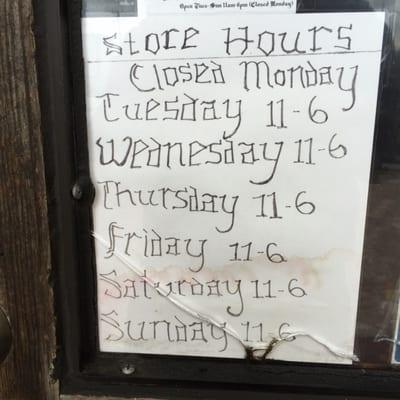 Open Tues-Sun 11am-6pm (Closed Monday)
Store Hours
Closed Monday
Tuesday 11-6
Wednesday 11-6
Thursday 11-6
Friday 11-6
Saturday 11-6
Sunday 11-6